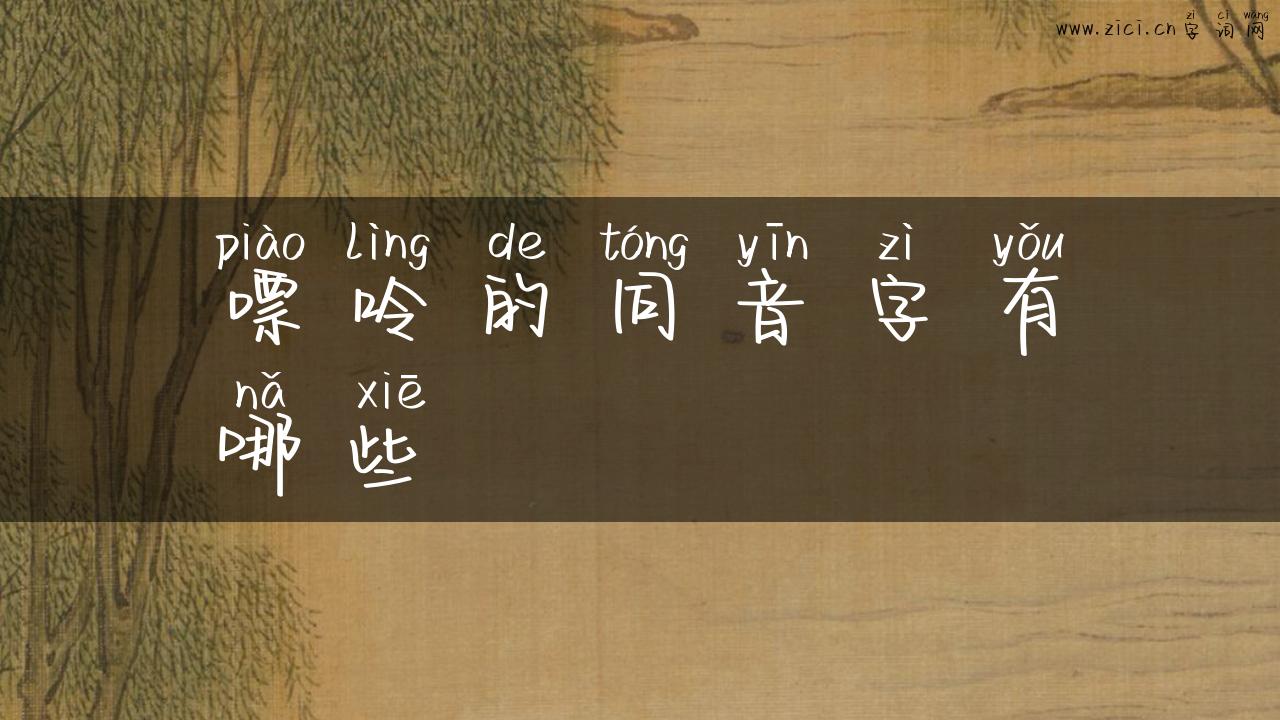 zì cí wǎng
www.zici.cn 字词网
piào lìng de tóng yīn zì yǒu
嘌呤的同音字有
nǎ xiē
哪些